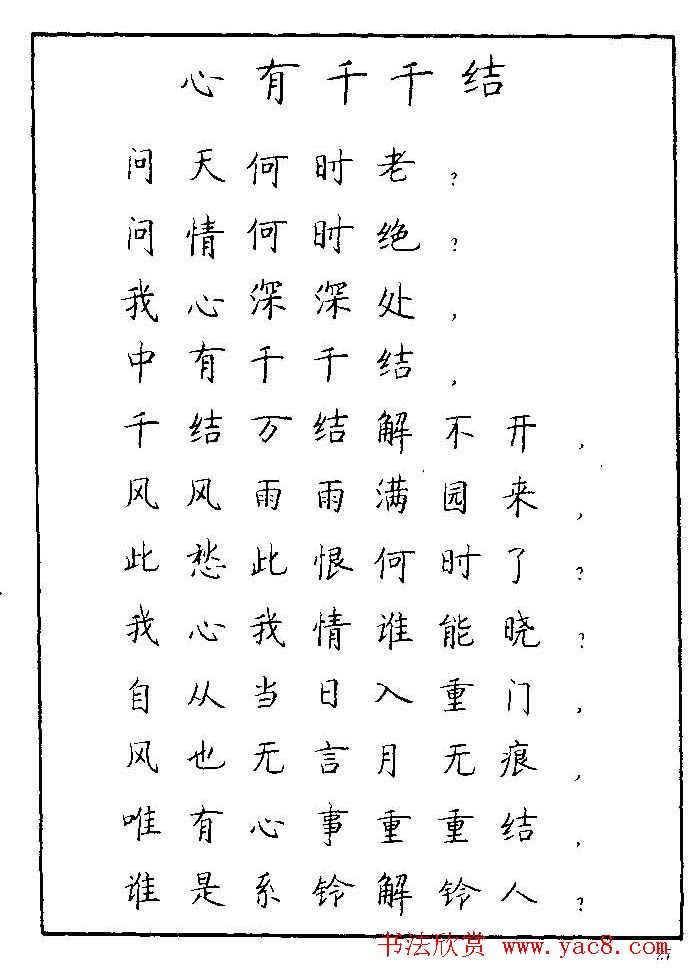 心有千千结
问天何时老?
问情何时绝?
我心深深处,
中有千千结,
千结万结解不开,
风风雨雨满园来,
此愁此恨何时了?
我心我情谁能晓?
自从当日入重门,
风也无言月无痕,
唯有心事重重结,
谁是系铃解铃人?
书法欣赏 www.yac8.com